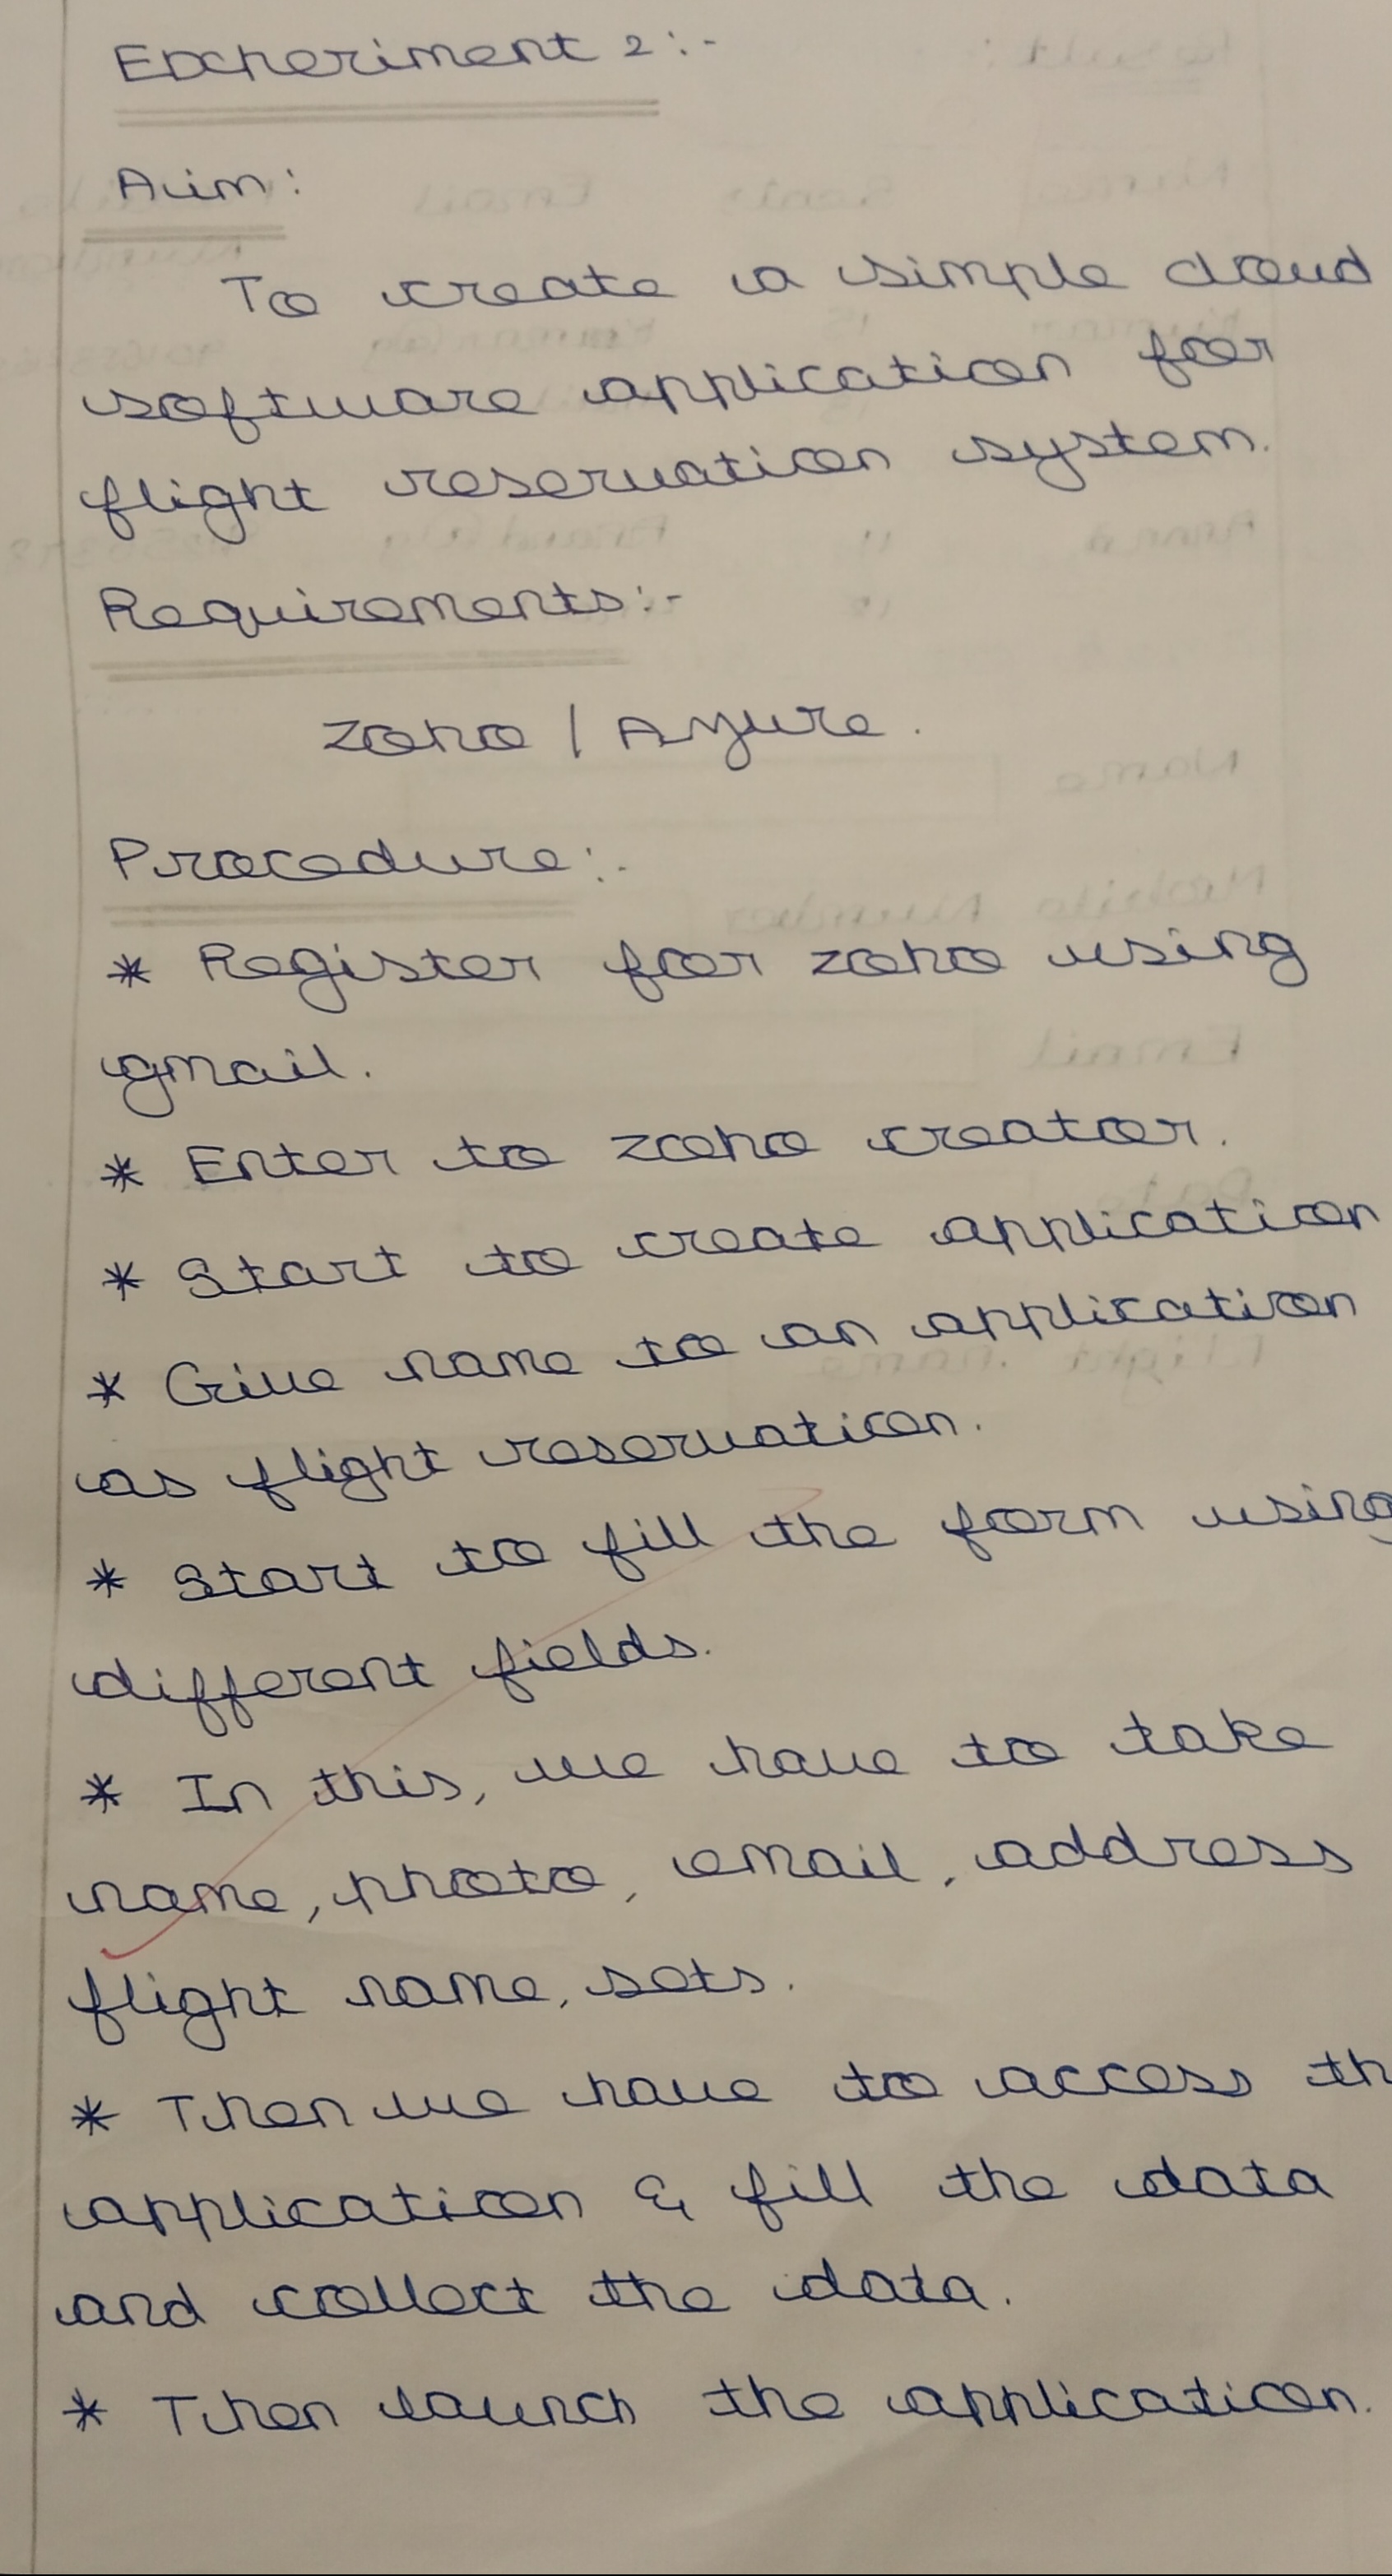 Experiment 2:-
Aim:
To create a simple cloud
software application for
flight reservation system.
Requirements:-
Zoho / Azure.
Procedure:-
* Register for zoho using
gmail.
* Enter to zoho creator.
* Start to create application
* Give name to an application
as flight reservation.
* Start to fill the form using
different fields.
* In this, we have to take
name, photo, email, address
flight name, sets.
* Then we have to access th
application & fill the data
and collect the data.
* Then launch the application.